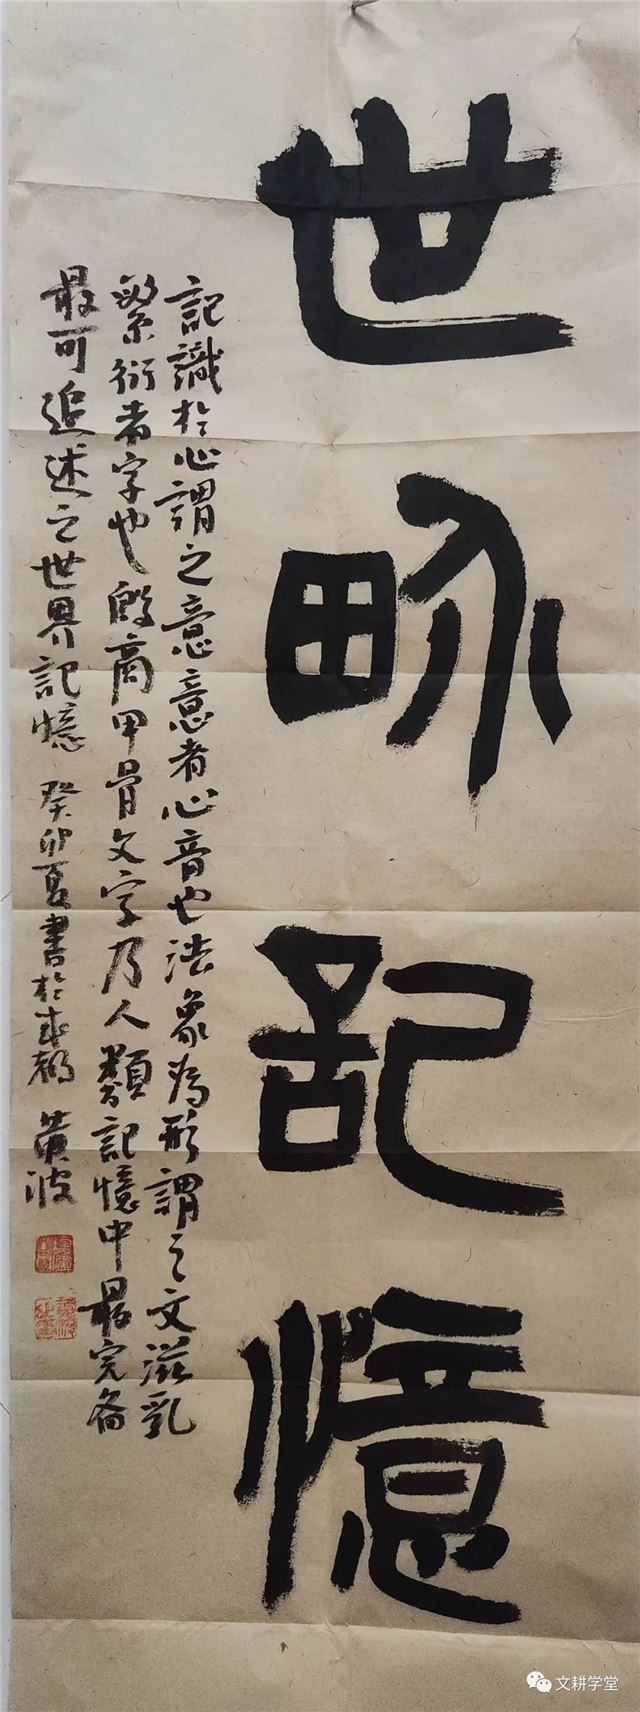 世畍記憶
記識於心謂之意意者心音也法象為形謂之文滋乳
繁衍者字也殷商甲骨文字乃人類記憶中最完备
最可追述之世界記憶 癸卯夏書於成都 黄波
文耕学堂